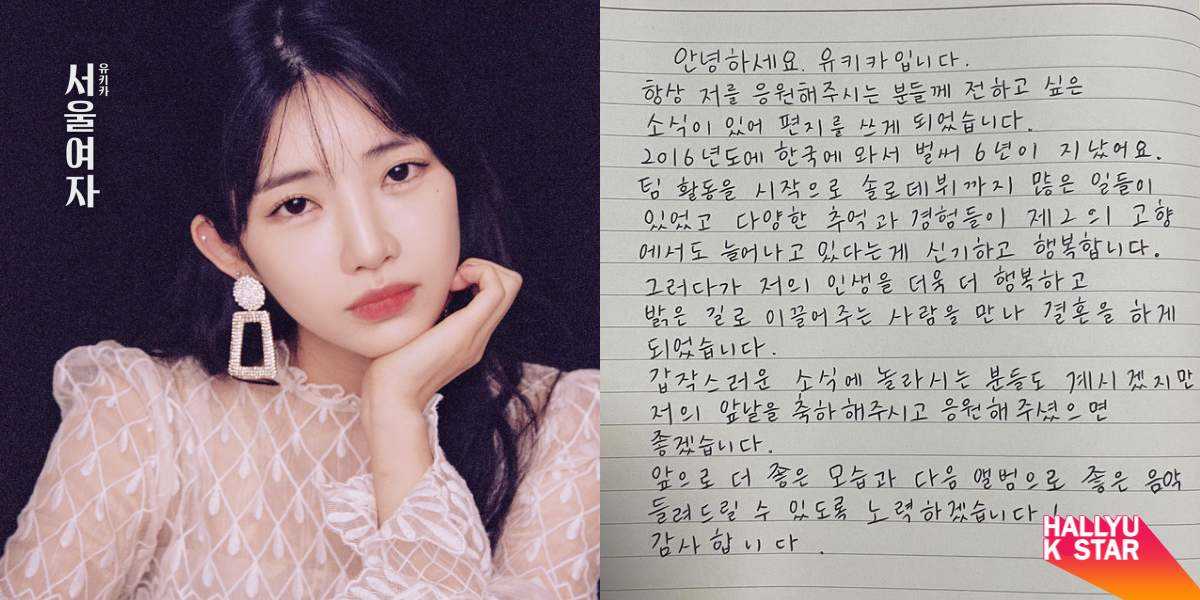 유키카
서울여자
안녕하세요. 유키카입니다.
항상 저를 응원해주시는 분들께 전하고 싶은
소식이 있어 편지를 쓰게 되었습니다.
2016년도에 한국에 와서 벌써 6년이 지났어요.
팀 활동을 시작으로 솔로데뷔까지 많은 일들이
있었고 다양한 추억과 경험들이 제2의 고향
에서도 늘어나고 있다는게 신기하고 행복합니다.
그러다가 저의 인생을 더욱 더 행복하고
밝은 길로 이끌어주는 사람을 만나 결혼을 하게
되었습니다.
갑작스러운 소식에 놀라시는 분들도 계시겠지만
저의 앞날을 축하해주시고 응원해주셨으면
좋겠습니다.
앞으로 더 좋은 모습과 다음 앨범으로 좋은 음악
들려드릴 수 있도록 노력하겠습니다!
감사합니다.
HALLYU
K STAR